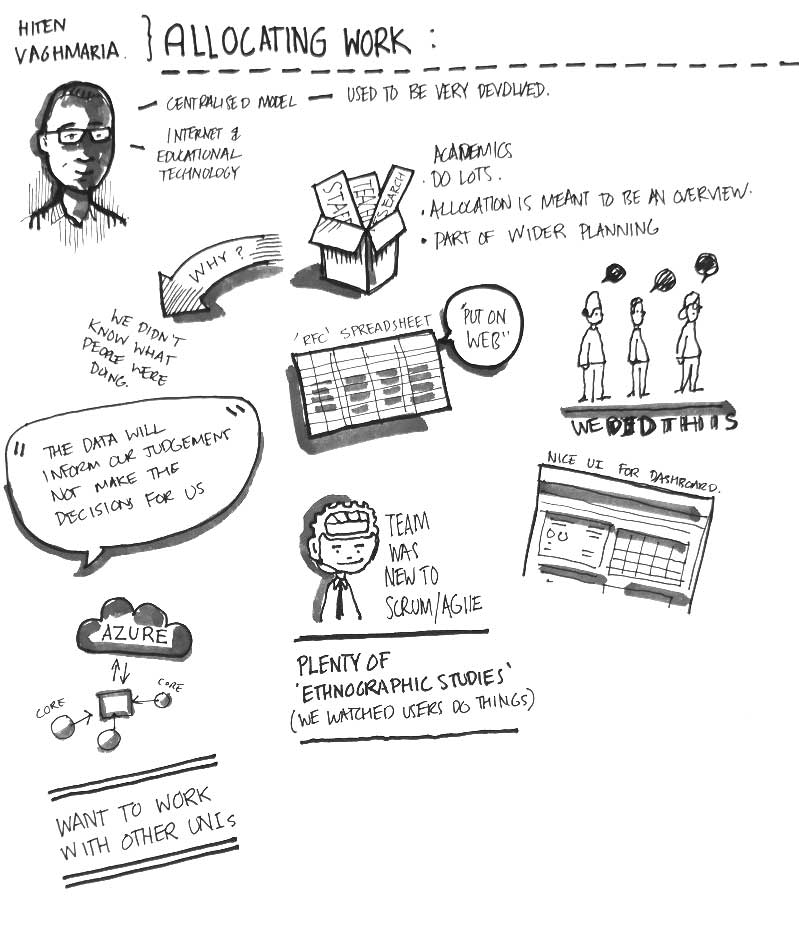 HITEN
VAGHMARIA.
ALLOCATING WORK :
CENTRALISED MODEL — USED TO BE VERY DEVOLVED.
INTERNET &
EDUCATIONAL
TECHNOLOGY
STAFF
TEACH
SEARCH
ACADEMICS
• DO LOTS.
• ALLOCATION IS MEANT TO BE AN OVERVIEW.
• PART OF WIDER PLANNING
WHY?
WE DIDN'T
KNOW WHAT
PEOPLE WERE
DOING.
'RFC' SPREADSHEET
"PUT ON
WEB"
WE DID THIS
"THE DATA WILL
INFORM OUR JUDGEMENT
NOT MAKE THE
DECISIONS FOR US"
NICE UI FOR DASHBOARD.
TEAM
WAS
NEW TO
SCRUM/AGILE
AZURE
CORE
CORE
PLENTY OF
'ETHNOGRAPHIC STUDIES'
(WE WATCHED USERS DO THINGS)
WANT TO WORK
WITH OTHER UNIs